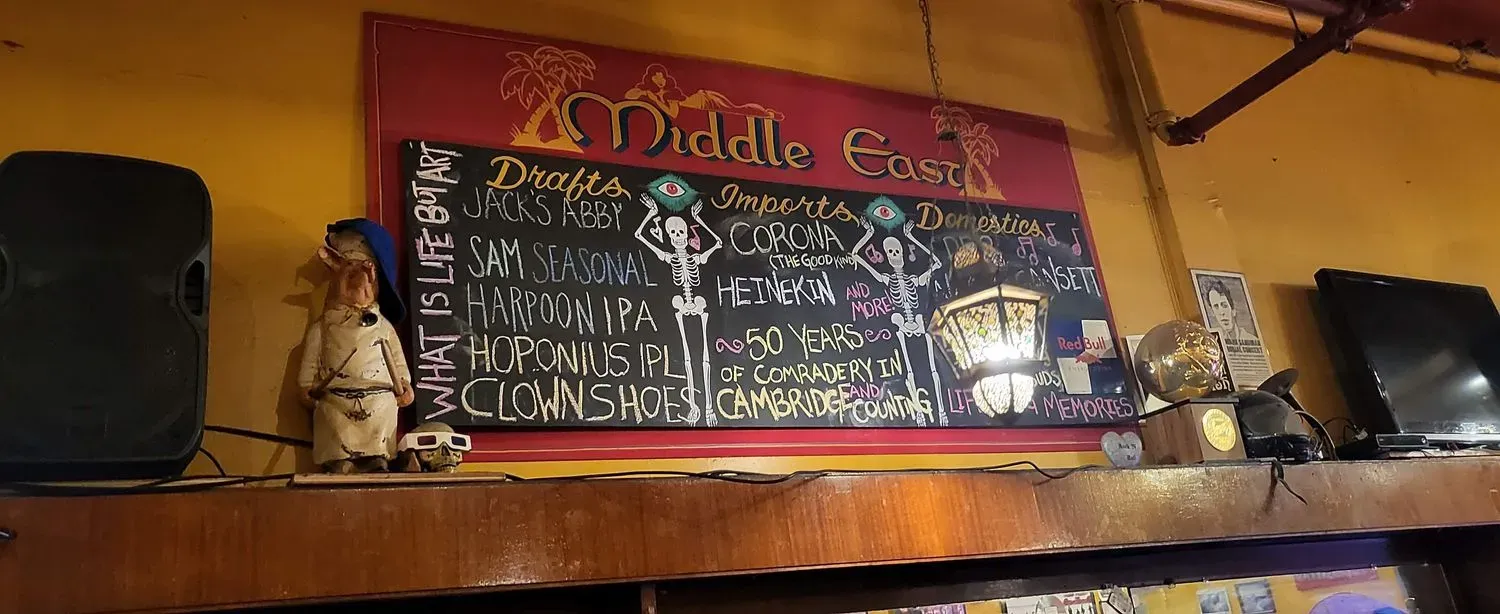 Middle East
WHAT IS LIFE BUT ART
Drafts
JACK'S ABBY
SAM SEASONAL
HARPOON IPA
HOPONIUS IPL
CLOWN SHOES
Imports
CORONA
(THE GOOD KIND)
HEINEKIN
AND
MORE!
50 YEARS
OF COMRADERY IN
CAMBRIDGE
AND
COUNTING
Domestics
Red Bull
MEMORIES